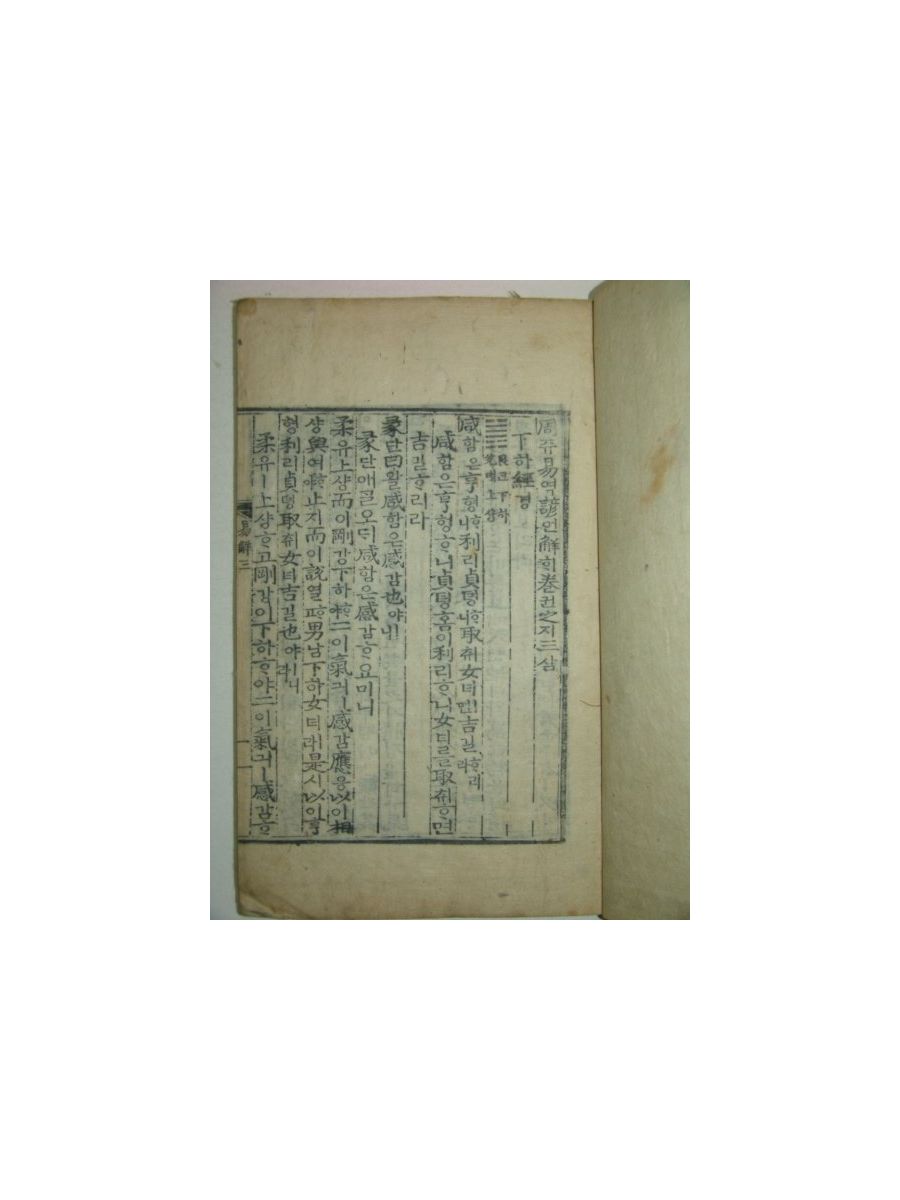 周쥬易역諺언解ᄒᆡ卷권之지三삼
下하經경
艮간下하兌태上샹
咸함은亨형ᄒᆞ니利리貞뎡ᄒᆞ니取ᄎᆔ女녀면吉길ᄒᆞ리라
咸함은亨형ᄒᆞ니貞뎡홈이利리ᄒᆞ니女녀를取ᄎᆔᄒᆞ면
吉길ᄒᆞ리라
彖단曰왈咸함은感감也야ㅣ니
彖단애ᄀᆞᆯ오ᄃᆡ咸함은感감홈이니
柔유上샹而이剛강下하ᄒᆞ야二이氣긔ㅣ感감應응以이相
샹與여ᄒᆞ야止지而이說열ᄒᆞ고男남下하女녀ㅣ라是시以이亨
형利리貞뎡取ᄎᆔ女녀吉길也야ㅣ니라
柔유ㅣ上샹ᄒᆞ고剛강이下하ᄒᆞ야二이氣긔ㅣ感감ᄒᆞ
易解三 一